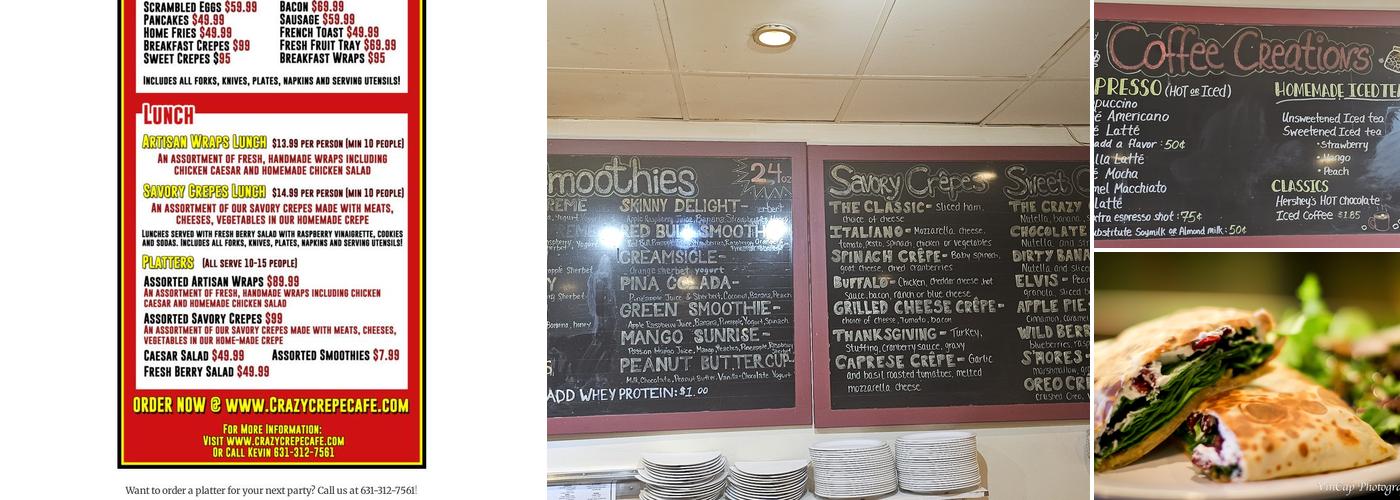 Scrambled Eggs $59.99
Pancakes $49.99
Home Fries $49.99
Breakfast Crepes $99
Sweet Crepes $95
Bacon $69.99
Sausage $59.99
French Toast $49.99
Fresh Fruit Tray $69.99
Breakfast Wraps $95
Includes all forks, knives, plates, napkins and serving utensils!
Lunch
Artisan Wraps Lunch $13.99 per person (min 10 people)
An assortment of fresh, handmade wraps including
chicken caesar and homemade chicken salad
Savory Crepes Lunch $14.99 per person (min 10 people)
An assortment of our savory crepes made with meats,
cheeses, vegetables in our homemade crepe
Lunches served with fresh berry salad with raspberry vinaigrette, cookies
and sodas. Includes all forks, knives, plates, napkins and serving utensils!
Platters (All serve 10-15 people)
Assorted Artisan Wraps $89.99
An assortment of fresh, handmade wraps including chicken
caesar and homemade chicken salad
Assorted Savory Crepes $99
An assortment of our savory crepes made with meats, cheeses,
vegetables in our home-made crepe
Caesar Salad $49.99 Assorted Smoothies $7.99
Fresh Berry Salad $49.99
Order now @ www.Crazycrepecafe.com
For More Information:
Visit www.crazycrepecafe.com
Or Call Kevin 631-312-7561
Want to order a platter for your next party? Call us at 631-312-7561!
moothies 24oz
SKINNY DELIGHT-
RED BULL SMOOTH
CREAMSICLE-
Orange sherbet yogurt
PINA COLADA-
Pineapple Juice & Sherbet, Coconut, Banana, Peach
GREEN SMOOTHIE-
Apple Raspberry Juice, Banana, Pineapple, Yogurt, Spinach
MANGO SUNRISE-
PEANUT BUTTERCUP-
Milk, Chocolate, Peanut Butter, Vanilla-Chocolate Yogurt
ADD WHEY PROTEIN: $1.00
Savory Crêpes
THE CLASSIC- Sliced ham,
choice of cheese
ITALIANO- Mozzarella cheese,
tomato, pesto, spinach, chicken or vegetables
SPINACH CRÊPE- Baby spinach,
goat cheese, dried cranberries
BUFFALO- Chicken, cheddar cheese, hot
sauce, bacon, ranch or blue cheese
GRILLED CHEESE CRÊPE-
choice of cheese, tomato, bacon
THANKSGIVING- Turkey,
Stuffing, cranberry sauce, gravy
CAPRESE CRÊPE- Garlic
and basil roasted tomatoes, melted
mozzarella cheese
Sweet C
THE CRAZY
Nutella, banana, s
CHOCOLATE
DIRTY BANA
Nutella and sliced
ELVIS- Pean
granola, sliced b
APPLE PIE-
Cinnamon, caramel
WILD BERR
S'MORES-
OREO CRÊ
crushed Oreo, V
Coffee Creations
PRESSO (HOT or Iced)
ppuccino
é Americano
é Latté
add a flavor: 50¢
lla Latté
é Mocha
mel Macchiato
Latté
xtra espresso shot: 75¢
ubstitute Soymilk or Almond milk: 50¢
HOMEMADE ICED TEA
Unsweetened Iced tea
Sweetened Iced tea
• Strawberry
• Mango
• Peach
CLASSICS
Hershey's HOT Chocolate
Iced Coffee $1.85
VinCap Photogra